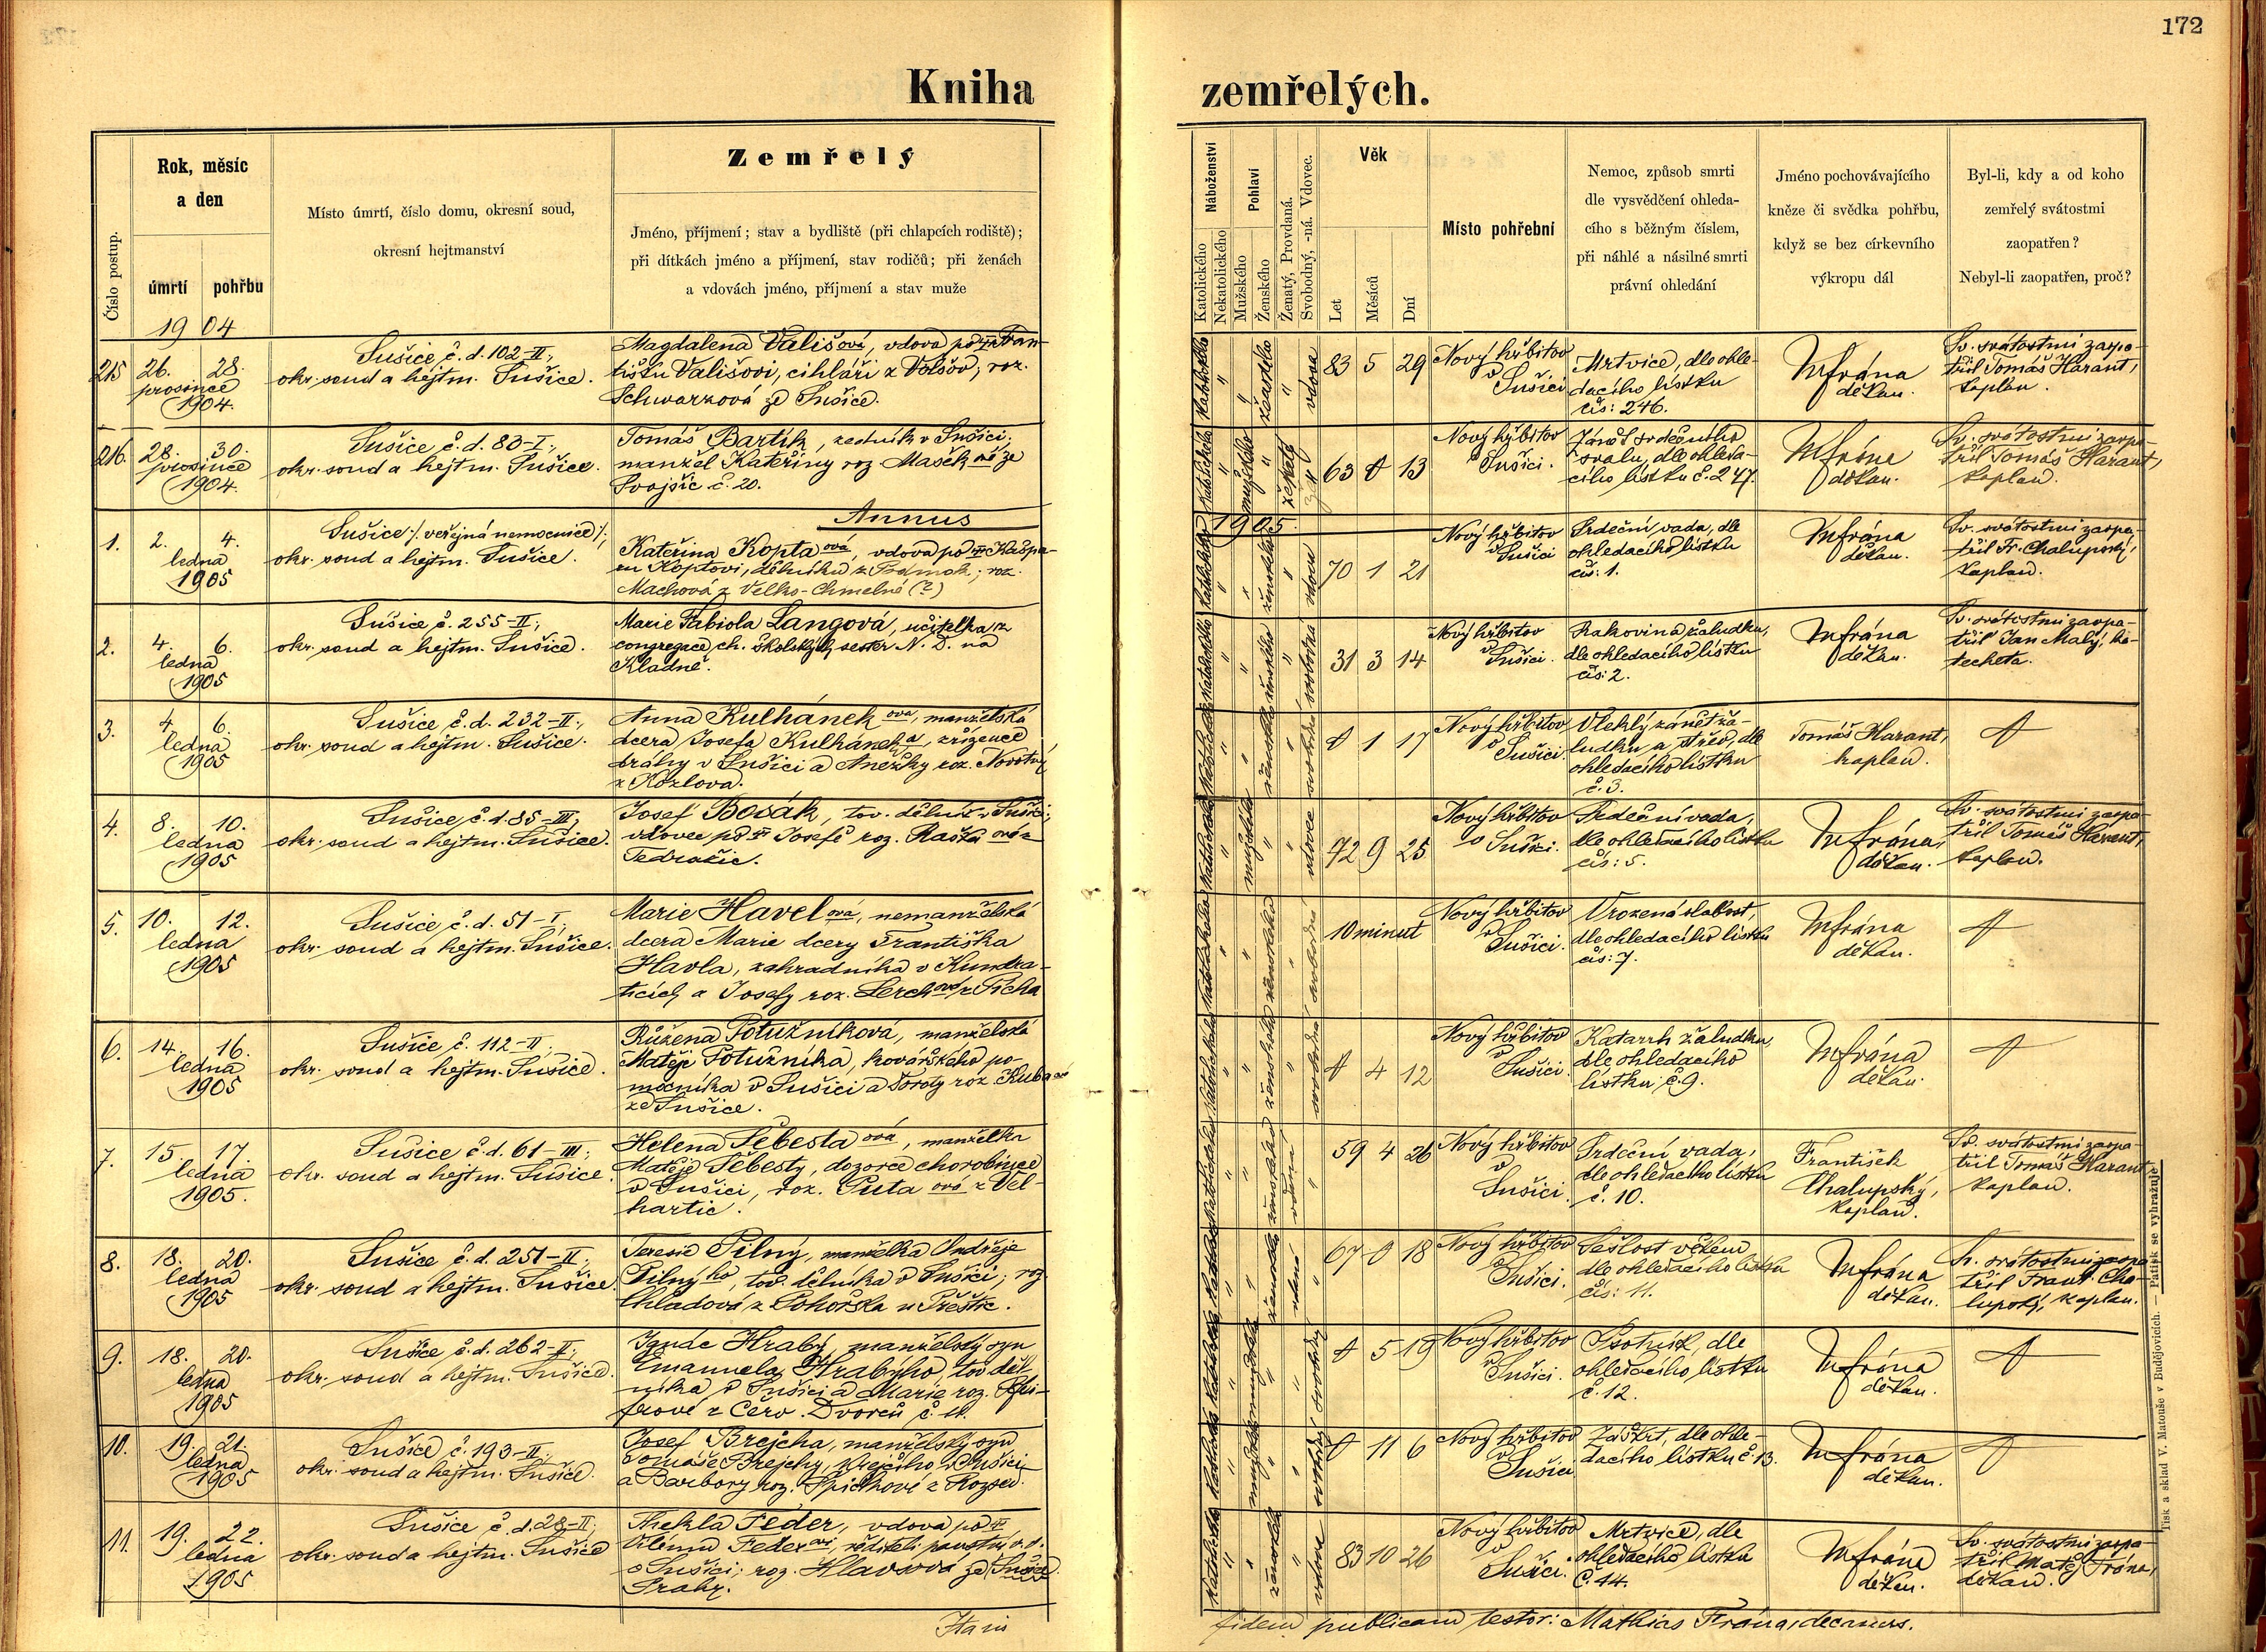 172
Kniha zemřelých.
Číslo postup.
Rok, měsíc
a den
úmrtí
pohřbu
Místo úmrtí, číslo domu, okresní soud,
okresní hejtmanství
Zemřelý
Jméno, příjmení; stav a bydliště (při chlapcích rodiště);
při dítkách jméno a příjmení, stav rodičů; při ženách
a vdovách jméno, příjmení a stav muže
Náboženství
Katolického
Nekatolického
Pohlaví
Mužského
Ženského
Ženatý, Provdaná.
Svobodný, -ná. Vdovec.
Věk
Let
Měsíců
Dní
Místo pohřební
Nemoc, způsob smrti
dle vysvědčení ohleda-
cího s běžným číslem,
při náhlé a násilné smrti
právní ohledání
Jméno pochovávajícího
kněze či svědka pohřbu,
když se bez církevního
výkropu dál
Byl-li, kdy a od koho
zemřelý svátostmi
zaopatřen?
Nebyl-li zaopatřen, proč?
1904
215
26. 28.
prosince
1904.
Sušice, č. d. 102-II;
okr. soud a hejtm. Sušice.
Magdalena Vališová, vdova po † Fran-
tišku Vališovi, cihláři z Volšov; roz.
Schwarzová ze Sušice.
katolického
ženského
vdova
83 5 29
Nový hřbitov
v Sušici
Mrtvice, dle ohle-
dacího lístku
čís: 246.
MFrána
děkan.
Sv. svátostmi zaopa-
třil Tomáš Harant,
kaplan.
216.
28. 30.
prosince
1904.
Sušice č. d. 83-I;
okr. soud a hejtm. Sušice.
Tomáš Bartík, zedník v Sušici,
manžel Kateřiny roz. Mašek-né ze
Svojšic č. 20.
katolického
mužského
ženatý
63 0 13
Nový hřbitov
v Sušici.
Zánět srdečního
svalu, dle ohleda-
cího lístku č. 247.
MFrána
děkan.
Sv. svátostmi zaopa-
třil Tomáš Harant,
kaplan.
Annus 1905.
1.
2. 4.
ledna
1905
Sušice /: veřejná nemocnice :/;
okr. soud a hejtm. Sušice.
Kateřina Koptaová, vdova po † Kašpa-
ru Koptovi, dělníku z Podmok; roz.
Machová z Velko-Chmelné (?)
ženského
vdova
70 1 21
Nový hřbitov
v Sušici
Srdeční vada, dle
ohledacího lístku
čís: 1.
MFrána
děkan.
Sv. svátostmi zaopa-
třil Fr. Chalupský,
kaplan.
2.
4. 6.
ledna
1905
Sušice č. 255-II;
okr. soud a hejtm. Sušice.
Marie Fabiola Langová, učitelka z
congregace ch. školských sester N. D. na
Kladně.
katolického
ženského
svobodná
31 3 14
Nový hřbitov
v Sušici.
Rakovina žaludku,
dle ohledacího lístku
čís: 2.
MFrána
děkan.
Sv. svátostmi zaopa-
třil Jan Malý, ka-
techeta.
3.
4. 6.
ledna
1905
Sušice č. d. 232-II;
okr. soud a hejtm. Sušice.
Anna Kulhánekova, manželská
dcera Josefa Kulhánka, zřízence
dráhy v Sušici a Anežky roz. Novotný
z Kozlova.
katolického
ženského
svobodná
0 1 17
Nový hřbitov
v Sušici.
Vleklý zánět ža-
ludku a střev, dle
ohledacího lístku
č. 3.
Tomáš Harant,
kaplan.
4.
8. 10.
ledna
1905
Sušice č. d. 85-III;
okr. soud a hejtm. Sušice.
Josef Bosák, tov. dělník v Sušici;
vdovec po † Josefě roz. Raška-ové z
Tedražic.
katolického
mužského
vdovec
72 9 25
Nový hřbitov
v Sušici.
Srdeční vada,
dle ohledacího lístku
čís: 5.
MFrána,
děkan.
Sv. svátostmi zaopa-
třil Tomáš Harant,
kaplan.
5.
10. 12.
ledna
1905
Sušice č. d. 51-I,
okr. soud a hejtm. Sušice.
Marie Havelová, nemanželská
dcera Marie dcery Františka
Havla, zahradníka v Kundra-
ticích a Josefy roz. Lerchové z Picha
katolického
ženského
svobodná
10 minut
Nový hřbitov
v Sušici.
Vrozená slabost,
dle ohledacího lístku
čís: 7.
MFrána
děkan.
6.
14. 16.
ledna
1905
Sušice č. 112-II;
okr. soud a hejtm. Sušice.
Růžena Potužníková, manželská
Matěje Potužníka, kovářského po-
mocníka v Sušici a Doroty roz. Kuba-ové
ze Sušice.
katolického
ženského
svobodná
0 4 12
Nový hřbitov
v Sušici.
Katarrh žaludku,
dle ohledacího
lístku č. 9.
MFrána
děkan.
7.
15. 17.
ledna
1905.
Sušice č. d. 61-III;
okr. soud a hejtm. Sušice.
Helena Šebestaová, manželka
Matěje Šebesty, dozorce chorobince
v Sušici, roz. Putaová z Vel-
hartic.
katolického
ženského
vdaná
59 4 26
Nový hřbitov
v
Sušici.
Srdeční vada,
dle ohledacího lístku
č. 10.
František
Chalupský,
kaplan.
Sv. svátostmi zaopa-
třil Tomáš Harant
kaplan.
8.
18. 20.
ledna
1905
Sušice č. d. 251-II;
okr. soud a hejtm. Sušice.
Teresie Pilný, manželka Ondřeje
Pilného, tov. dělníka v Sušici; roz.
Chladová z Pohořska u Přeštic.
ženského
vdaná
67 0 18
Nový hřbitov
v Sušici.
Sešlost věkem
dle ohledacího lístku
čís: 11.
MFrána
děkan.
Sv. svátostmi zaopa-
třil Frant. Cha-
lupský, kaplan.
9.
18. 20.
ledna
1905
Sušice č. d. 262-II;
okr. soud a hejtm. Sušice.
Ignác Hrabý, manželský syn
Emanuela Hrabýho, tov. děl-
níka v Sušici a Marie roz. Pfei-
frové z Červ. Dvorců č. 11.
mužského
svobodný
0 5 19
Nový hřbitov
v Sušici.
Psotník, dle
ohledacího lístku
č. 12.
MFrána
děkan.
10.
19. 21.
ledna
1905
Sušice č. 193-II;
okr. soud a hejtm. Sušice.
Josef Brejcha, manželský syn
Tomáše Brejchy, krejčího v Sušici
a Barbory roz. Špirkové z Rozsed.
mužského
svobodný
0 11 6
Nový hřbitov
v Sušici
Záškrt, dle ohle-
dacího lístku č. 13.
MFrána
děkan.
11.
19. 22.
ledna
1905
Sušice č. d. 28-II;
okr. soud a hejtm. Sušice
Thekla Feder, vdova po †
Vilému Federovi, řediteli panství v. d.
v Sušici; roz. Hlavsová ze Sušice.
Prahy.
katolického
ženského
vdova
83 10 26
Nový hřbitov
v
Sušici.
Mrtvice, dle
ohledacího lístku
č. 14.
MFrána
děkan.
Sv. svátostmi zaopa-
třil Matěj Frána,
děkan.
In fidem publicam testor: Mathias Frána, decanus.
Tisk a sklad V. Matouše v Budějovicích. — Patisk se vyhražuje.